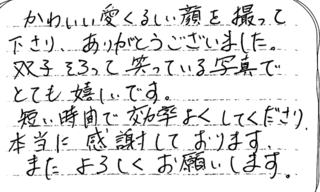 かわいい愛くるしい顔を撮って
下さり、ありがとうございました。
双子そろって笑っている写真で
とても嬉しいです。
短い時間で効率よくしてくださり、
本当に感謝しております。
またよろしくお願いします。